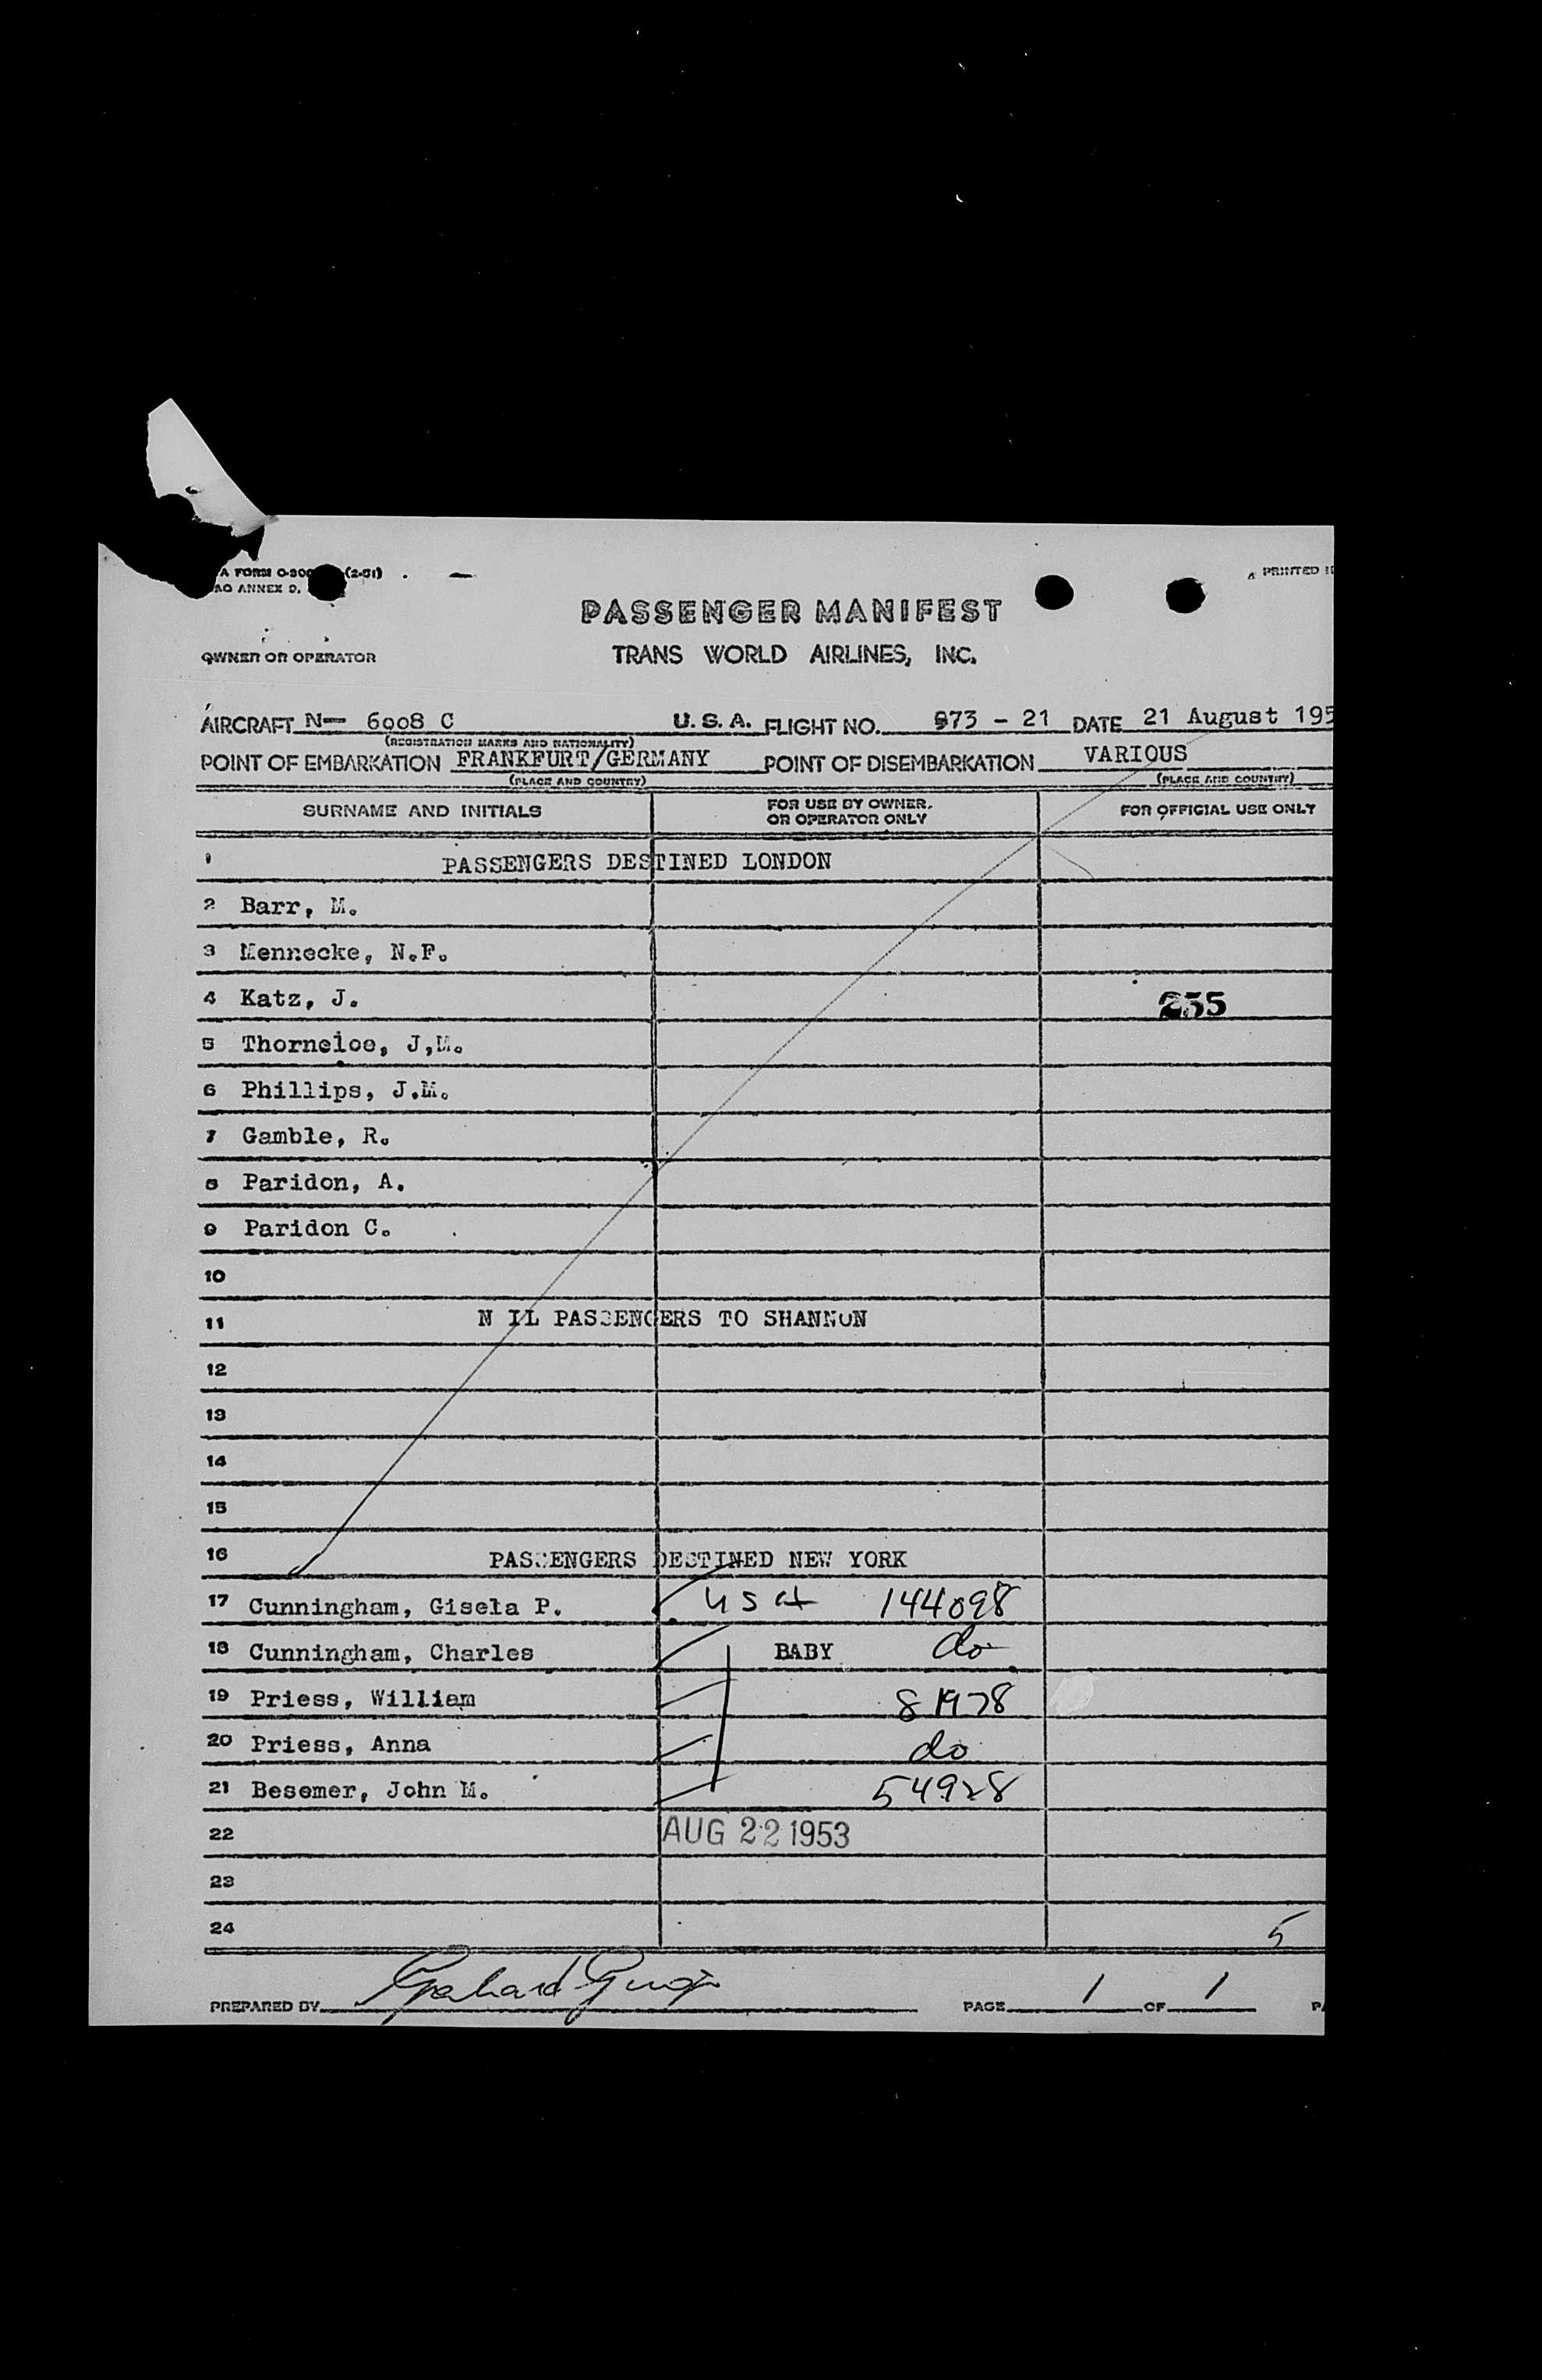 A FORM O-300 (2-51)
AO ANNEX 9,
PRINTED
PASSENGER MANIFEST
OWNER OR OPERATOR
TRANS WORLD AIRLINES, INC.
AIRCRAFT N- 6008 C U.S.A. FLIGHT NO. 973 - 21 DATE 21 August 195
(REGISTRATION MARKS AND NATIONALITY)
POINT OF EMBARKATION FRANKFURT/GERMANY POINT OF DISEMBARKATION VARIOUS
(PLACE AND COUNTRY) (PLACE AND COUNTRY)
SURNAME AND INITIALS FOR USE BY OWNER. OR OPERATOR ONLY FOR OFFICIAL USE ONLY
1 PASSENGERS DESTINED LONDON
2 Barr, M.
3 Mennecke, N.F.
4 Katz, J. 255
5 Thorneloe, J,M.
6 Phillips, J.M.
7 Gamble, R.
8 Paridon, A.
9 Paridon C.
10
11 N IL PASSENGERS TO SHANNON
12
13
14
15
16 PASSENGERS DESTINED NEW YORK
17 Cunningham, Gisela P. USA 144098
18 Cunningham, Charles BABY do
19 Priess, William 81978
20 Priess, Anna do
21 Besemer, John M. 54928
22 AUG 22 1953
23
24 5
PREPARED BY PAGE 1 OF 1